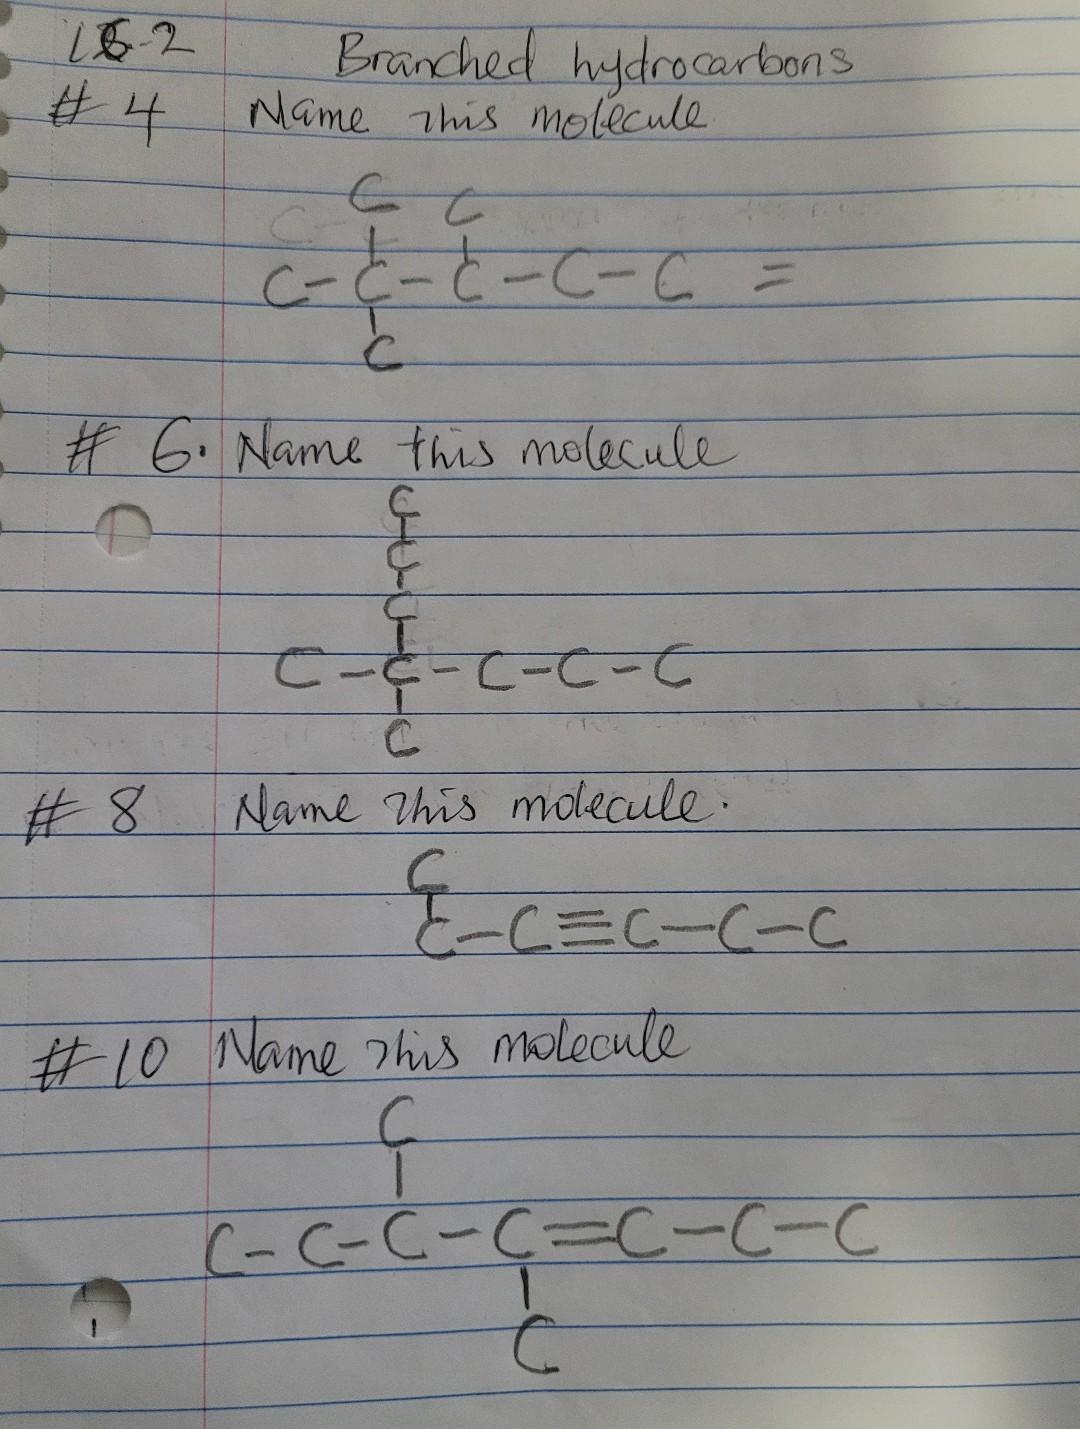 Branched hydrocarbons
# 4 Name this molecule
C C
C-C-C-C-C =
C
# 6. Name this molecule
C
C
C
C-C-C-C-C
C
# 8 Name this molecule.
C
C-C≡C-C-C
# 10 Name this molecule
C
C-C-C-C=C-C-C
C